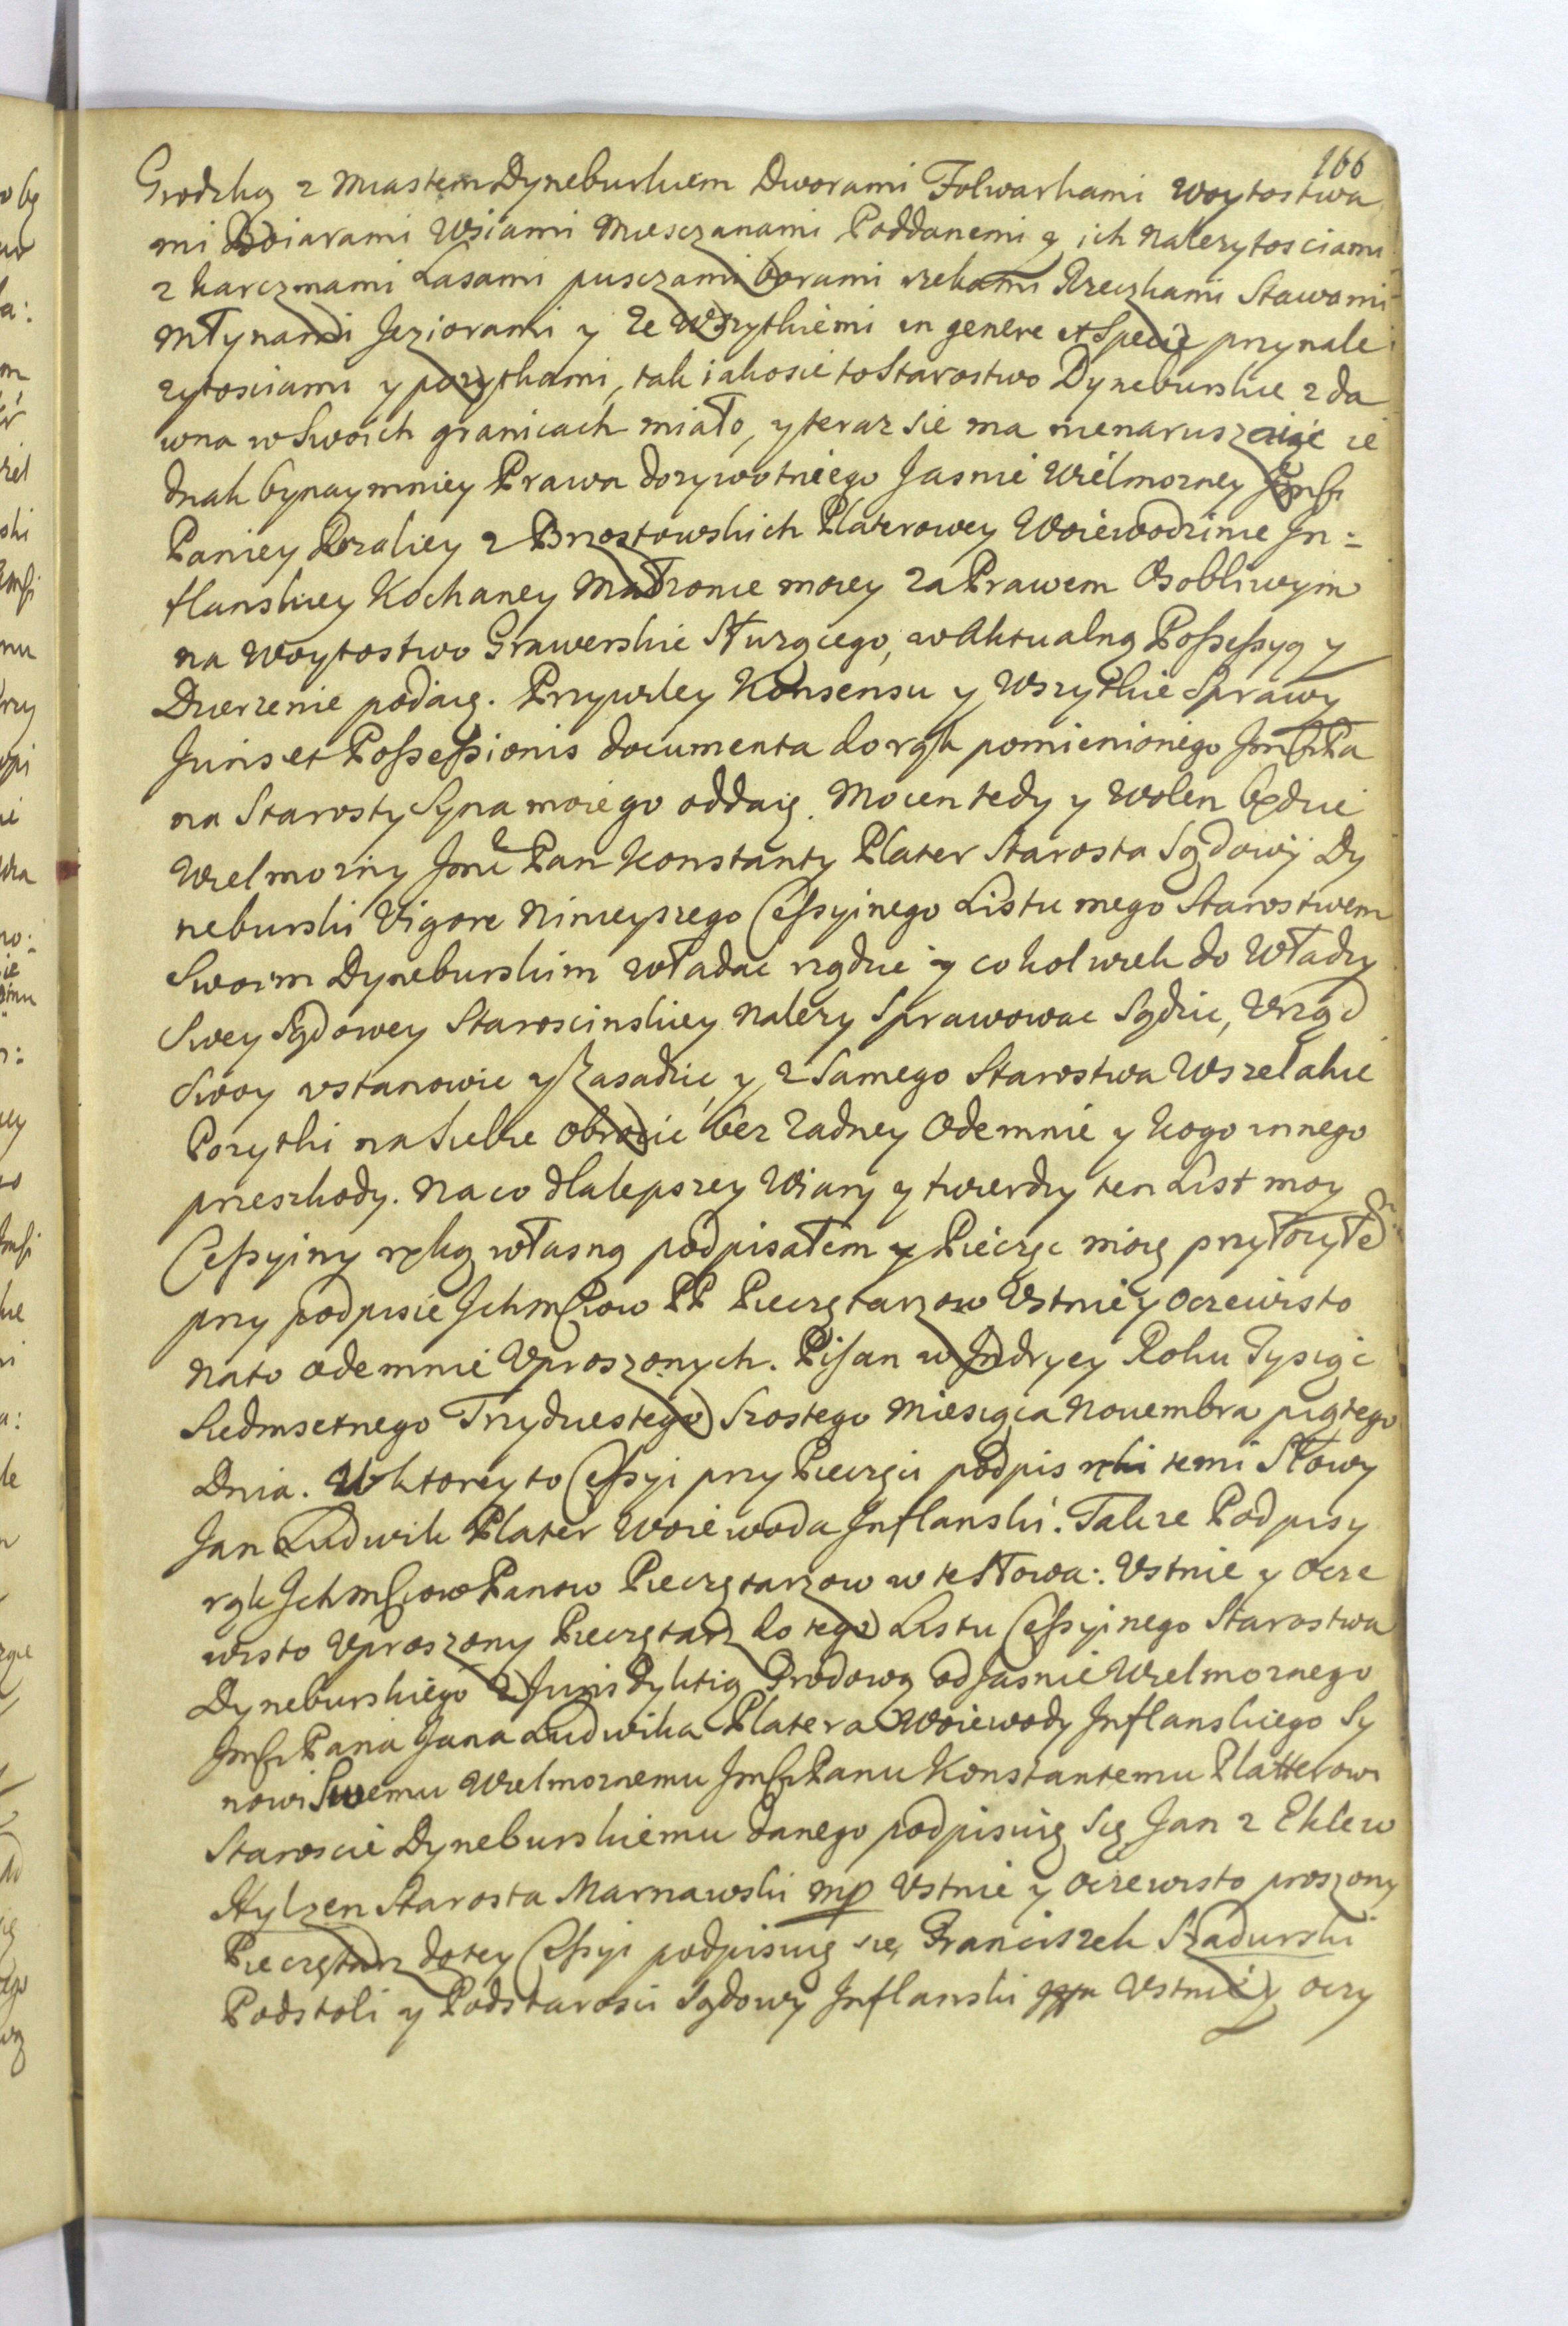 166
Grodzką z Miastem Dyneburkiem Dworami Folwarkami Woytostwa
mi Boiarami Wsiami Miesczanami Poddanemi y ich Nalezytosciami
z karczmami Lasami pusczami borami rzekami Rzeczkami Stawami
Młynami Jeziorami y Ze Wszytkiemi in genere et Specie przynale
zytosciami y pozytkami, tak iakosie to Starostwo Dyneburskie z da
wna w Swoich granicach miało, y teraz sie ma nienaruszaiąc ie
dnak bynaymniey Prawa dozywotniego Jasnie Wielmozney Jmsci
Paniey Rozaliey z Brzostowskich Platerowey Woiewodzinie In=
flanskiey Kochaney Małzonce moiey za Prawem Osobliwym
na Woytostwo Grawerskie Słuzącego, w Aktualną Possessyą y
Dzierzenie podaię. Przywiley Konsensu y Wszytkie Sprawy
Juris et Possessionis documenta do rąk pomienionego Jmsci Pa
na Starosty Syna moiego oddaię. Mocen tedy y Wolen będzie
Wielmozny Jmć Pan Konstanty Plater Starosta Sądowy Dy
neburski Vigore Ninieyszego Cessyinego Listu mego Starostwem
Swoim Dyneburskim władac rządzic y cokolwiek do Władzy
Swey Sądowey Staroscinskiey Nalezy Sprawowac Sądzic, Vrząd
Swoy vstanowic y Zasadzic, y z Samego Starostwa Wszelakie
Pozytki na Siebie obrocic bez Zadney Odemnie y kogo innego
przeszkody. Na co dla lepszey Wiary y twierdzy ten List moy
Cessyiny ręką własną podpisałem y Pieczęc moię przyłozyłe
przy podpisie Jchmsciow PP Pieczętarzow Vstnie y oczewisto
Nato odemnie Vproszonych. Pisan w Indrycy Roku Tysiąc
Siedmsetnego Trzydziestego Szostego Miesiąca Nouembra piątego
Dnia. W ktorey to Cessyi przy Pieczęci podpis ręki temi Słowy
Jan Ludwik Plater Woiewoda Inflanski. Takze Podpisy
rąk Jchmsciow Panow Pieczętarzow w te Słowa: Vstnie y ocze
wisto Vproszony Pieczętarz do tego Listu Cessyinego Starostwa
Dyneburskiego z Jurisdyktią Grodową od Jasnie Wielmoznego
Jmsci Pana Jana Ludwika Platera Woiewody Inflanskiego Sy
nowi Swemu Wielmoznemu Jmsci Panu Konstantemu Platterowi
Staroscie Dyneburskiemu danego podpisuię się Jan z Eklew
Hylzen Starosta Marnawski mp Vstnie y oczewisto proszony
Pieczętarz do tey Cessyi podpisuię się, Franciszek Szadurski
Podstoli y Podstarosci Sądowy Inflanski Vstnie y oczy